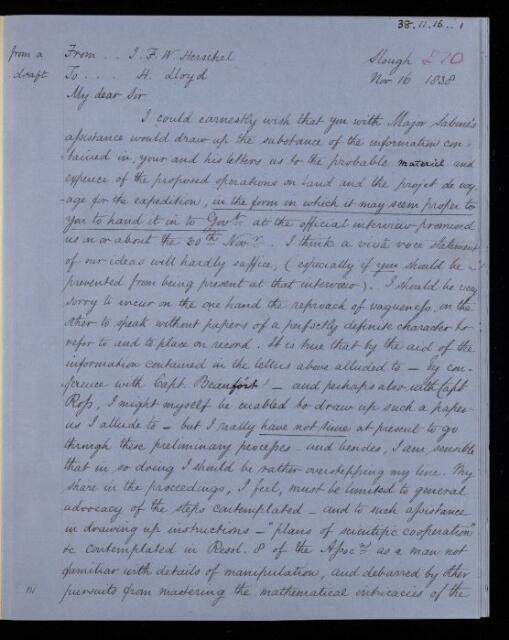 38.11.16..1
from a From . . J. F. W. Herschel Slough £70
draft To . . . H. Lloyd Nov 16 1838
My dear Sir
I could earnestly wish that you with Major Sabine's
assistance would draw up the substance of the information con-
-tained in your and his letters as to the probable materiel and
expence of the proposed operations on Land and the projet de voy-
-age for the expedition, in the form in which it may seem proper to
you to hand it in to Govt. at the official interview promised
us on or about the 30th Novr. I think a vivâ voce statement
of our ideas will hardly suffice, (especially if you should be
prevented from being present at that interview). I should be very
sorry to incur on the one hand the reproach of vagueness, on the
other to speak without papers of a perfectly definite character to
refer to and to place on record. It is true that by the aid of the
information contained in the letters above alluded to – by con-
ference with Capt Beaufort – and perhaps also with Capt
Ross, I might myself be enabled to draw up such a paper
as I allude to – but I really have not time at present to go
through these preliminary processes – and besides, I am sensible
that in so doing I should be rather overstepping my line. My
share in the proceedings, I feel, must be limited to general
advocacy of the steps contemplated – and to such assistance
in drawing up instructions – "plans of scientific cooperation"
&c contemplated in Resol. 8 of the Assocn as a man not
familiar with details of manipulation, and debarred by other
pursuits from mastering the mathematical intricacies of the